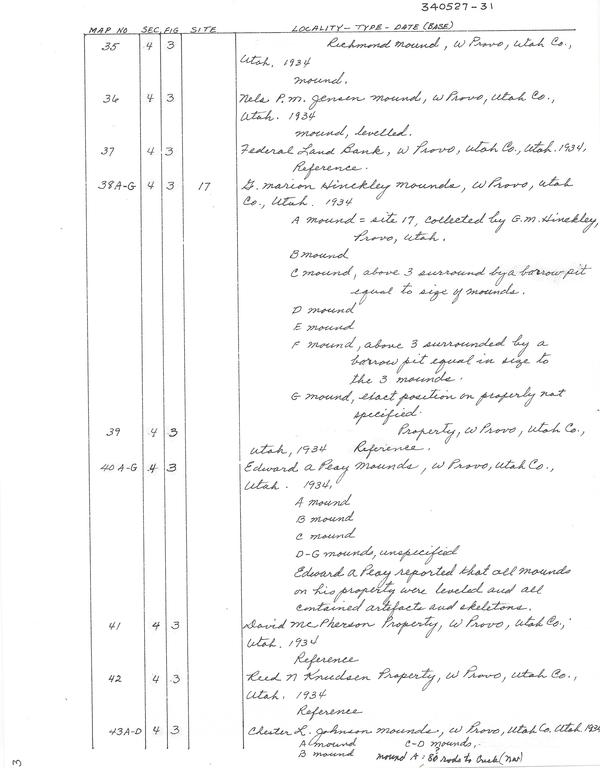 340527-31
MAP NO SEC. FIG SITE LOCALITY - TYPE - DATE (BASE)
35 4 3 Richmond mound, W Provo, Utah Co.,
Utah. 1934
mound.
36 4 3 Nels P. M. Jensen mound, W Provo, Utah Co.,
Utah. 1934
mound, levelled.
37 4 3 Federal Land Bank, W Provo, Utah Co., Utah. 1934,
Reference.
38A-G 4 3 17 G. Marion Hinckley mounds, W Provo, Utah
Co., Utah. 1934
A mound = site 17, collected by G. M. Hinckley,
Provo, Utah.
B mound
C mound, above 3 surround by a borrow pit
equal to size of mounds.
D mound
E mound
F mound, above 3 surrounded by a
borrow pit equal in size to
the 3 mounds.
G mound, exact position on property not
specified.
39 4 3 Property, W Provo, Utah Co.,
Utah, 1934 Reference.
40 A-G 4 3 Edward A Peay Mounds, W Provo, Utah Co.,
Utah. 1934,
A mound
B mound
C mound
D-G mounds, unspecified
Edward A Peay reported that all mounds
on his property were leveled and all
contained artefacts and skeletons.
41 4 3 David McPherson Property, W Provo, Utah Co.,
Utah. 1934
Reference
42 4 3 Reed N Knudsen Property, W Provo, Utah Co.,
Utah. 1934
Reference
43A-D 4 3 Chester L. Johnson mounds, W Provo, Utah Co. Utah 1934
A mound C-D mounds,
B mound mound A: 80 rods to Creek (NW)
3